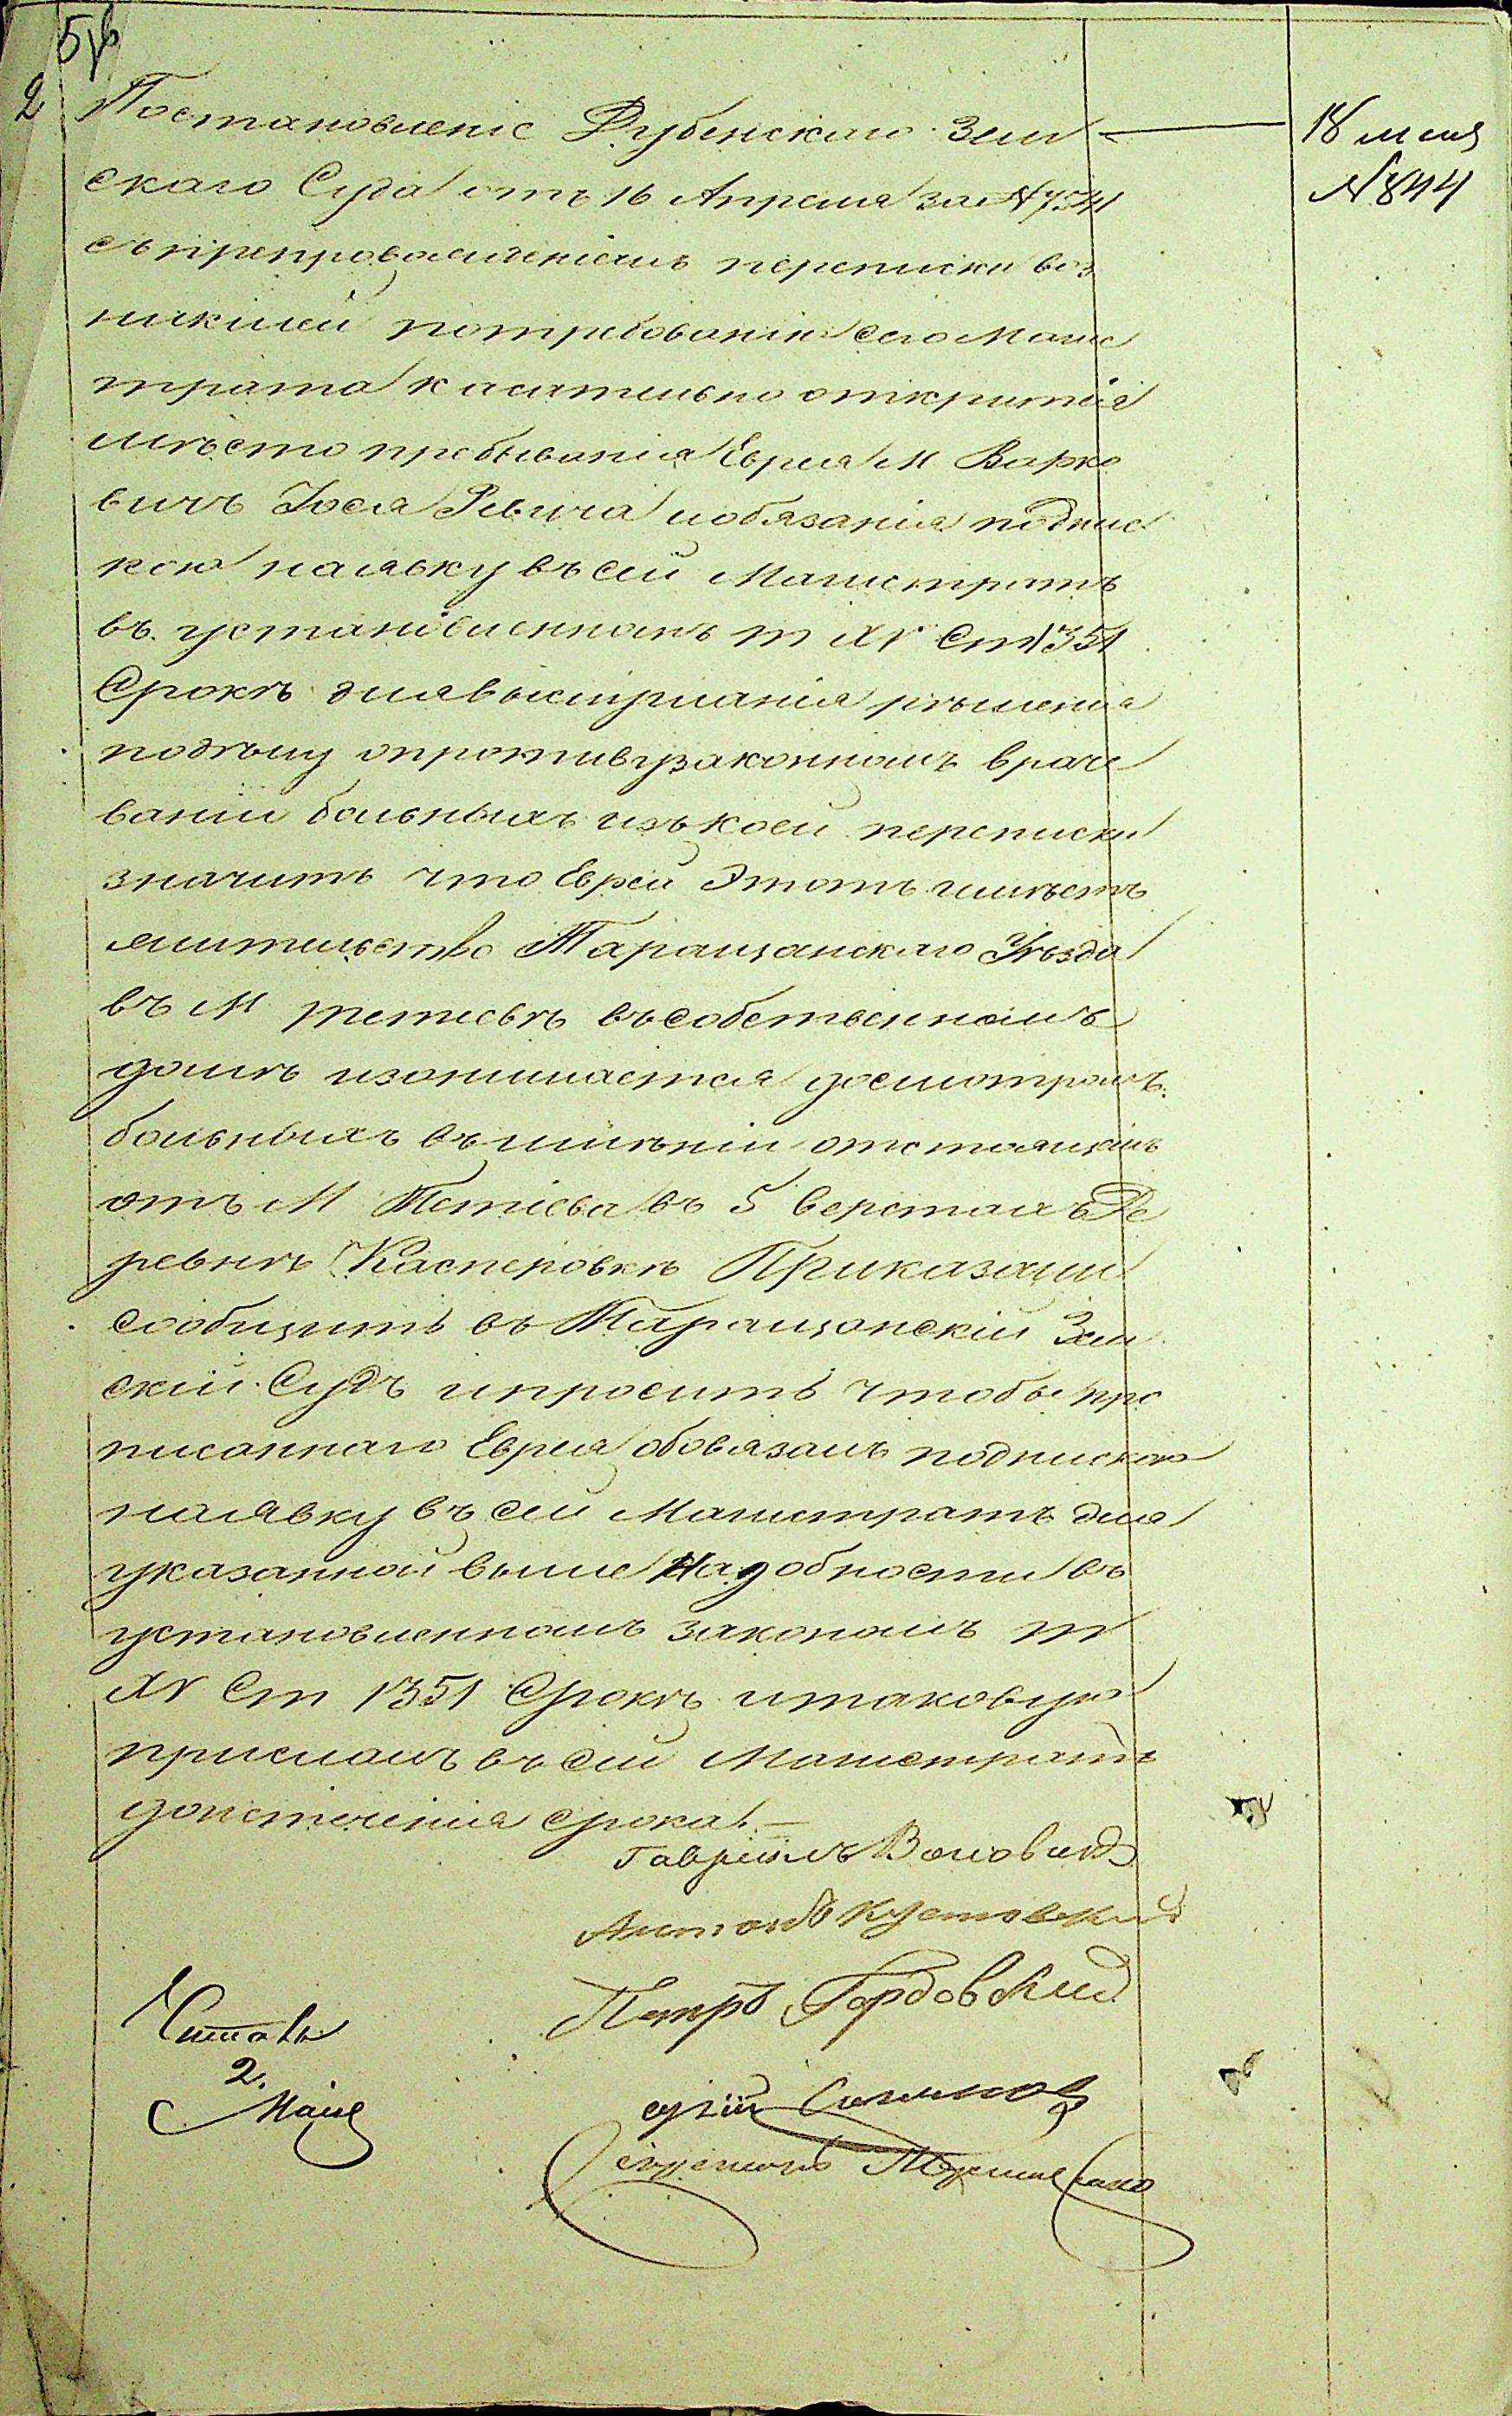 2
Постановленіе Дубенскаго Зем
скаго Суда отъ 16 Апреля за №
съ препровожденіемъ переписки воз
никшей потребованію сего Магис
трата касательно открытія
мѣсто пребыванія Еврея М Варко
вичъ Іося Ревича иобязанія подпис
кою наявку въ сей Магистратъ
въ установленномъ т XV Ст 1351
Срокѣ длявыслушанія рѣшенія
подѣлу опротивузаконномъ враче
ваніи больныхъ изъ коей переписки
значитъ что Еврей Этотъ имѣетъ
жительство Таращанскаго Уѣзда
въ М тетіевѣ въсобственномъ
домѣ изанимается досмотромъ
больныхъ въ имѣніи отстоящемъ
отъ М Тетіева въ 5 верстахъ Де
ревнѣ Касперовкѣ Приказали
сообщить въ Таращанскій Зем
скій Судъ ипросить чтобы про
писаннаго Еврея обовязалъ подпискою
наявку въ сей Магистратъ для
указанной выше Надобности въ
установленномъ закономъ т
XV Ст 1351 Срокѣ итаковую
прислалъ въ сей Магистратъ
доистеченія срока. —
18 мая
№ 844
Гавріилъ
Антонъ Кустовскій
Петръ Гордовскій
Читалъ
2.
Маія